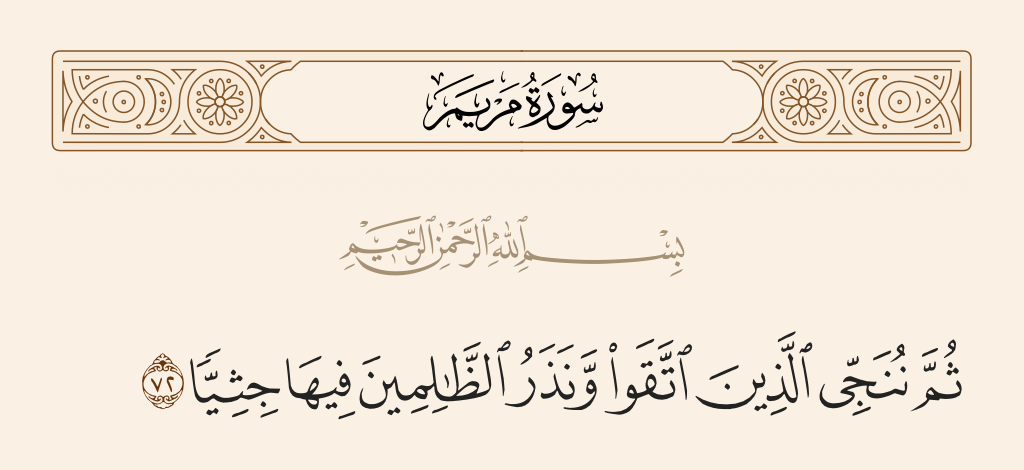 سُورَةُ مَرْيَمَ
بِسْمِ ٱللَّهِ ٱلرَّحْمَٰنِ ٱلرَّحِيمِ
ثُمَّ نُنَجِّى ٱلَّذِينَ ٱتَّقَوا۟ وَّنَذَرُ ٱلظَّٰلِمِينَ فِيهَا جِثِيًّا ٧٢